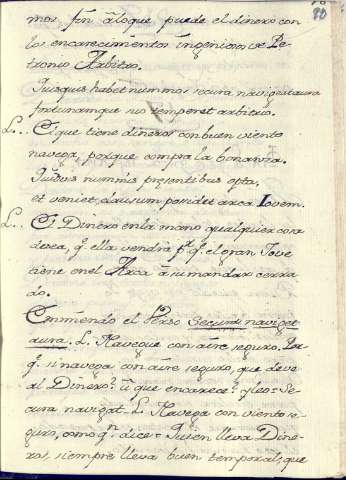 80
mos fin à lo que puede el dinero con
los encarecimientos ingeniosos de Pe-
tronio Arbitro.
Quisquis habet nummos secura naviget aura
fortunamque suo temperet arbitrio.
L... El que tiene dineros con buen viento
navega, porque compra la bonanza.
Quidvis nummis presentibus opta,
et veniet, clausum possidet arca Iovem.
L... El Dinero en la mano qualquier cosa
desea, q.e ella vendrà p.r q.e el gran Jove
tiene en el Arca à su mandar cerra
do.
Enmiendo el Verso Secura naviget
aura. L. Navegue con aire seguro. Por
q.e si navega con aire seguro, que deve
al Dinero? ù que encarece? y leo = Se-
cura navigat. L. Navega con viento se-
guro, como q.n dice = Quien lleva Dine-
ros, siempre lleva buen temporal, que